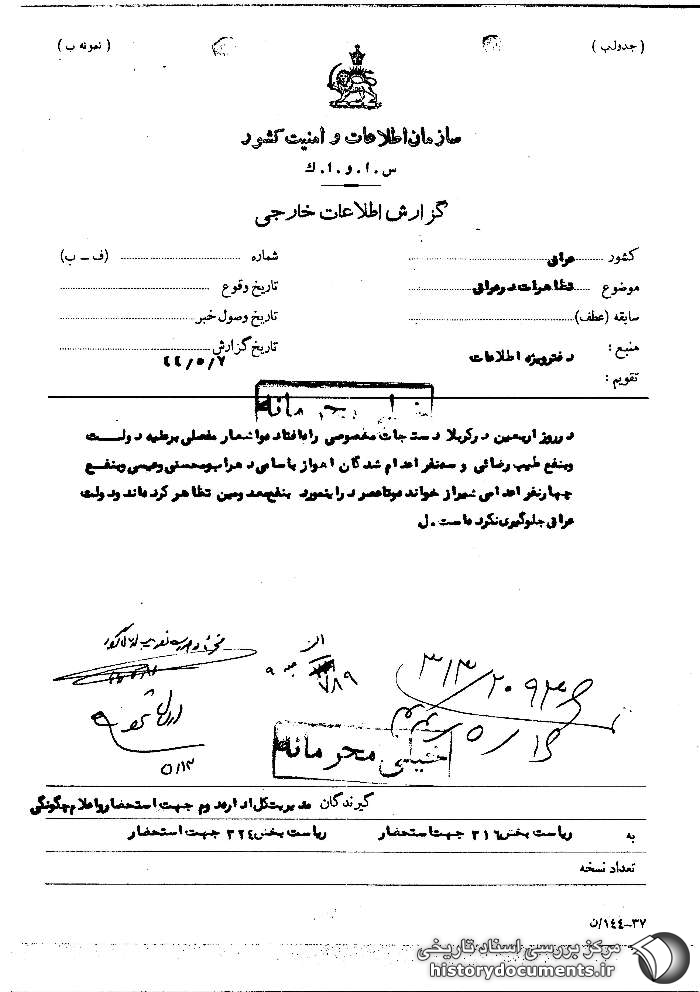 (جدول ب)
(نمونه ب)
سازمان اطلاعات و امنیت کشور
س . ا . و . ا . ك
گزارش اطلاعات خارجی
کشور عراق
شماره (ف – ب)
موضوع تظاهرات در عراق
تاریخ وقوع
سابقه (عطف)
تاریخ وصول خبر
منبع : دفتر ویژه اطلاعات
تاریخ گزارش ٤٤/٥/٧
تقویم :
خیلی محرمانه
در روز اربعین در کربلا دستجات مخصوصی راه افتاده و اشعار مفصلی بر علیه دولت
و بنفع طیب رضائی و سه نفر اعدام شدگان اهواز با سامی و عیسی و بنفع
چهار نفر اعدامی شیراز خوانده و تا عصر در اینمورد تظاهر کرده اند و دولت
عراق جلوگیری نکرده است . ل
از
۷۸۹
۳۱۳/۲۰۹۳۶
۵/۱۶
۵/۱۳
خیلی محرمانه
گیرندگان مدیریت کل اداره دوم جهت استحضار و اعلام چگونگی
به ریاست بخش ٣١٦ جهت استحضار ریاست بخش ٣٢٤ جهت استحضار
تعداد نسخه
٣٧–١٤٤/ن
مرکز بررسی اسناد تاریخی
historydocuments.ir